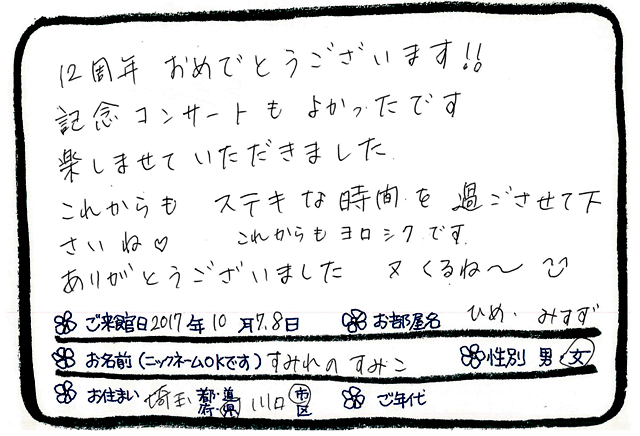 12周年 おめでとうございます!!
記念コンサートも よかったです
楽しませていただきました
これからも ステキな時間を過ごさせて下
さいね♡ これからもヨロシクです
ありがとうございました 又くるね〜
ご来館日2017年10月7.8日 お部屋名 ひめ・みすず
お名前(ニックネームOKです) すみれのすみこ 性別 男・女
お住まい 埼玉 都・道・府・県 川口 市・区 ご年代